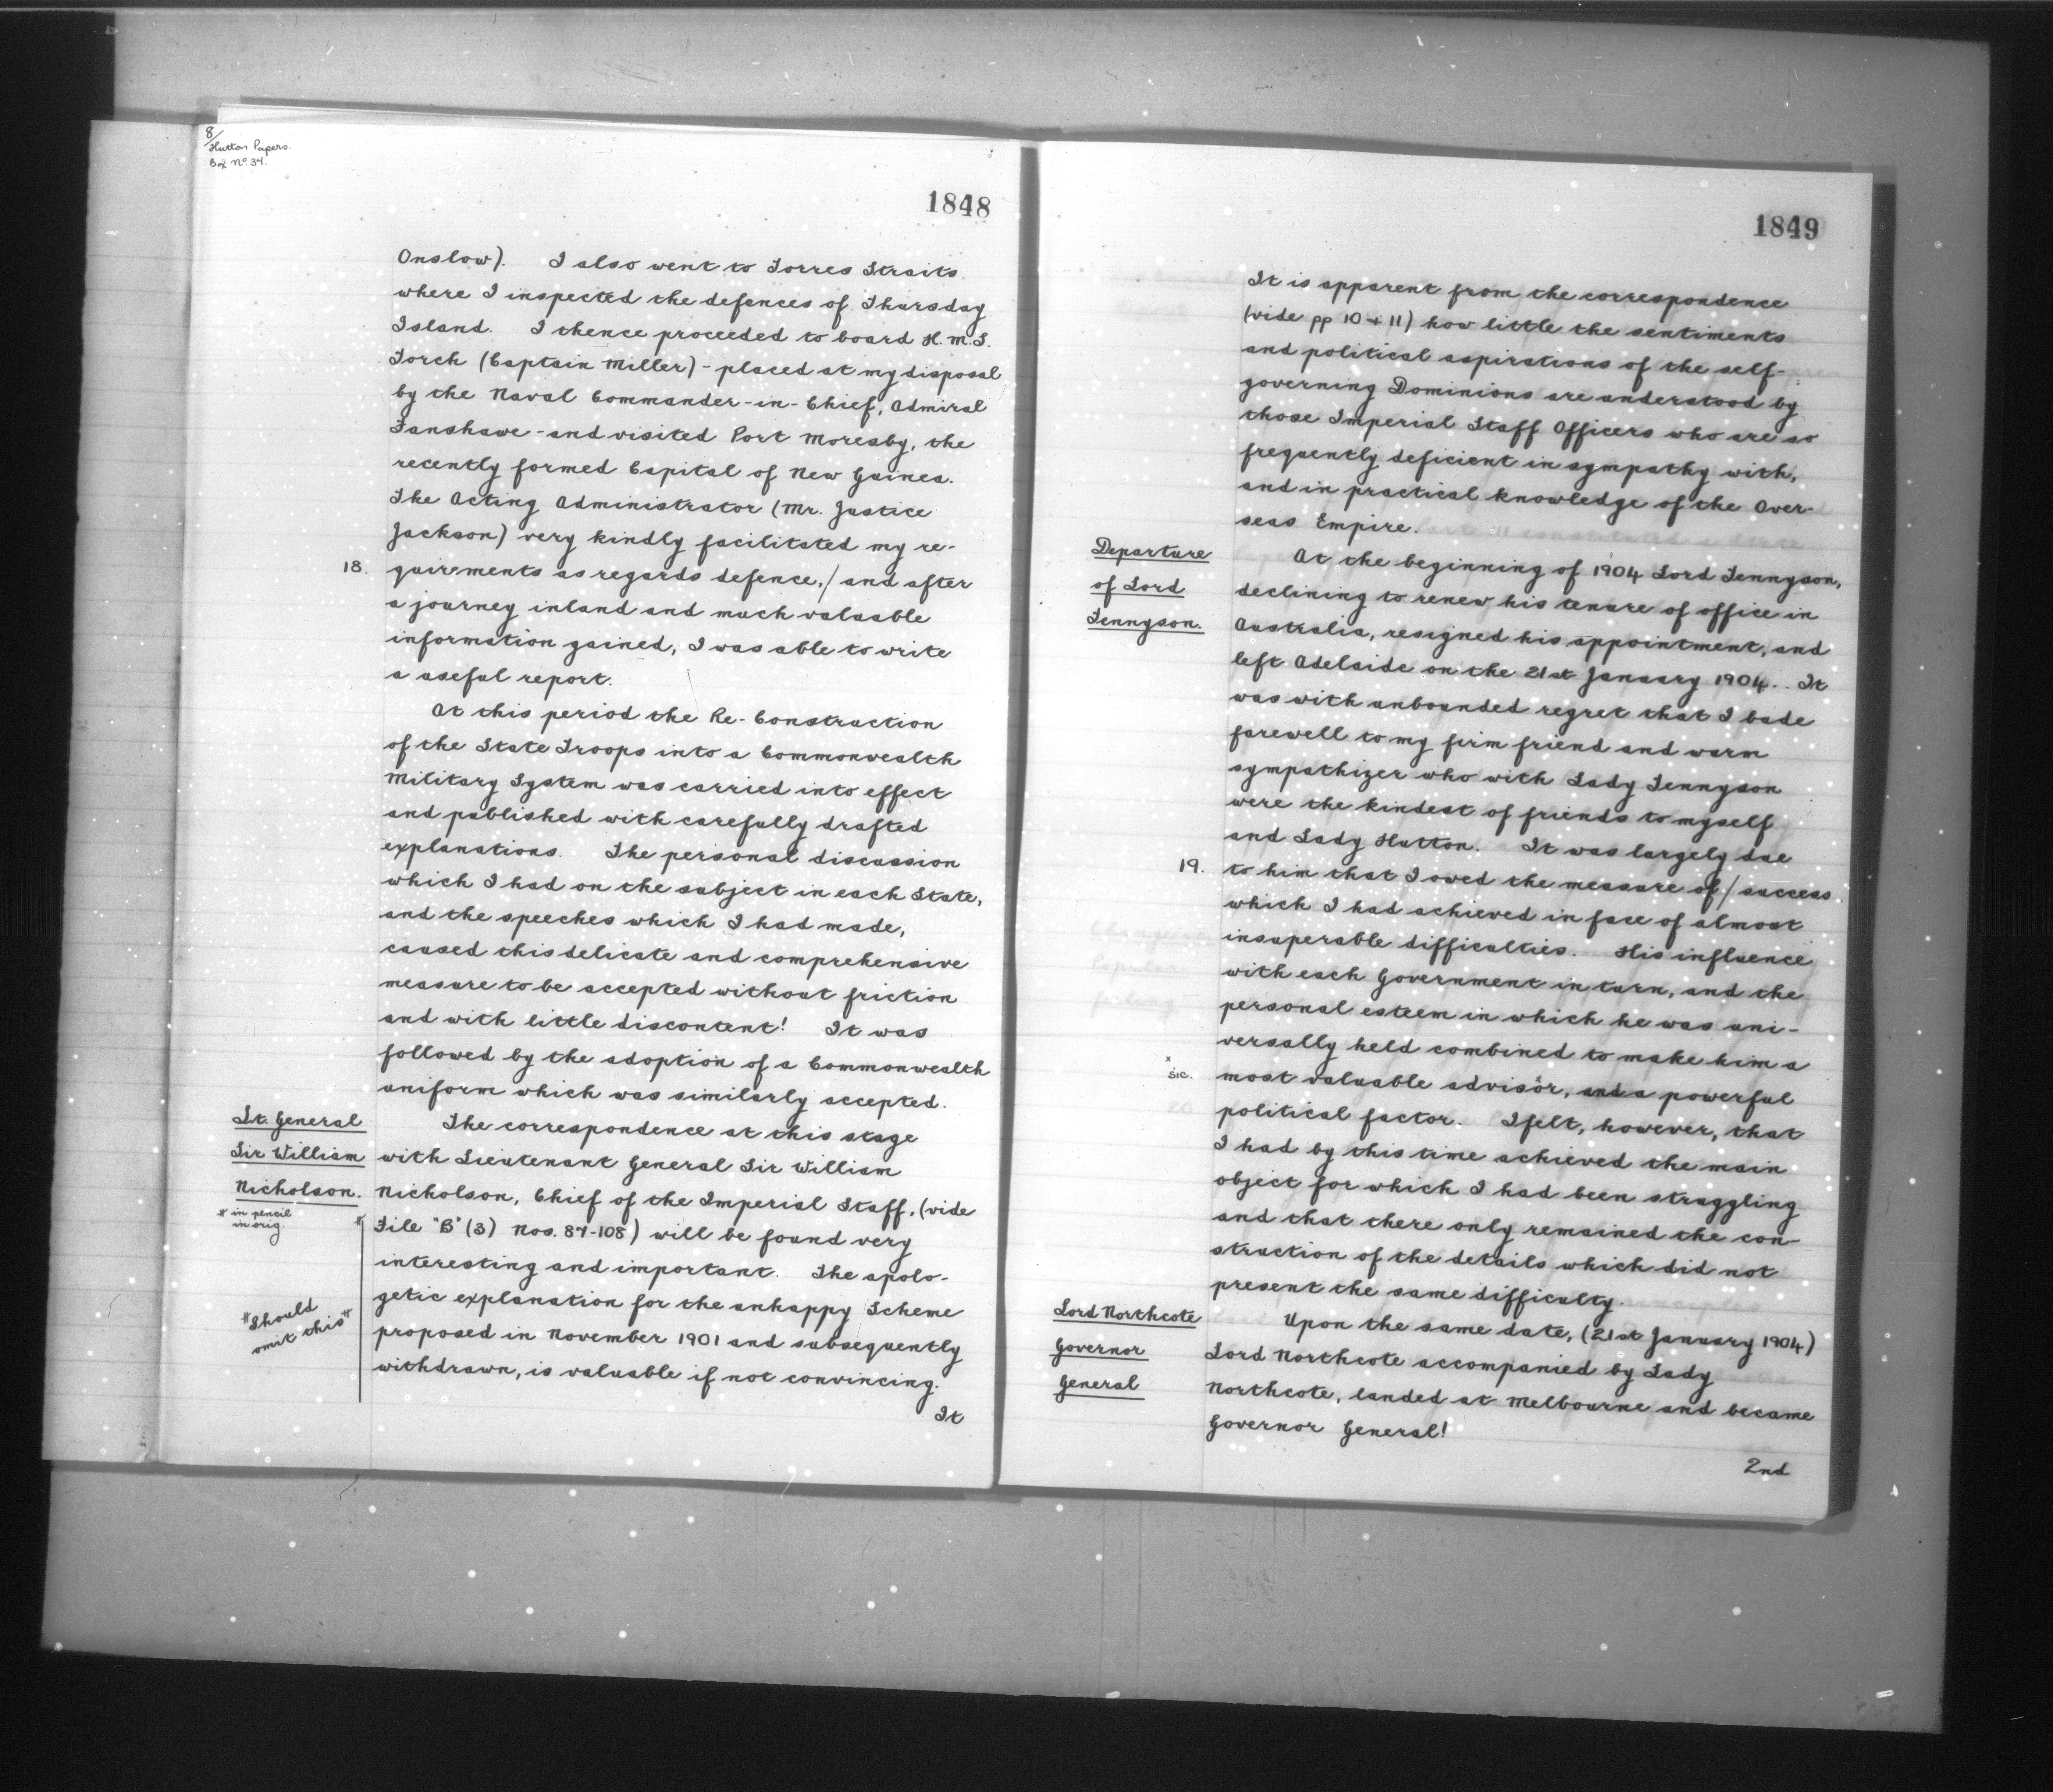 8/
Hutton Papers.
Box No. 34.
1848
Onslow). I also went to Torres Straits
where I inspected the defences of Thursday
Island. I thence proceeded to board H.M.S.
Torch (Captain Miller) - placed at my disposal
by the Naval Commander-in-Chief, Admiral
Fanshawe - and visited Port Moresby, the
recently formed Capital of New Guinea.
The Acting Administrator (Mr. Justice
Jackson) very kindly facilitated my re-
18. quirements as regards defence,/ and after
a journey inland and much valuable
information gained, I was able to write
a useful report.
At this period the Re-Construction
of the State Troops into a Commonwealth
Military System was carried into effect
and published with carefully drafted
explanations. The personal discussion
which I had on the subject in each State,
and the speeches which I had made,
caused this delicate and comprehensive
measure to be accepted without friction
and with little discontent! It was
followed by the adoption of a Commonwealth
uniform which was similarly accepted.
Lt. General
Sir William
Nicholson.
# in pencil
in orig.
"Should
omit this"
The correspondence at this stage
with Lieutenant General Sir William
Nicholson, Chief of the Imperial Staff, (vide
# File "B" (3) Nos. 87-108) will be found very
interesting and important. The apolo-
getic explanation for the unhappy Scheme
proposed in November 1901 and subsequently
withdrawn, is valuable if not convincing.
It
1849
It is apparent from the correspondence
(vide pp 10 + 11) how little the sentiments
and political aspirations of the self-
governing Dominions are understood by
those Imperial Staff Officers who are so
frequently deficient in sympathy with,
and in practical knowledge of the Over-
seas Empire.
Departure
of Lord
Tennyson.
At the beginning of 1904 Lord Tennyson,
declining to renew his tenure of office in
Australia, resigned his appointment, and
left Adelaide on the 21st January 1904. It
was with unbounded regret that I bade
farewell to my firm friend and warm
sympathizer who with Lady Tennyson
were the kindest of friends to myself
and Lady Hutton. It was largely due
19. to him that I owed the measure of/ success
which I had achieved in face of almost
insuperable difficulties. His influence
with each Government in turn, and the
personal esteem in which he was uni-
versally held combined to make him a
x
sic. most valuable advisor, and a powerful
political factor. I felt, however, that
I had by this time achieved the main
object for which I had been struggling
and that there only remained the con-
struction of the details which did not
present the same difficulty.
Lord Northcote
Governor
General
Upon the same date, (21st January 1904)
Lord Northcote accompanied by Lady
Northcote, landed at Melbourne and became
Governor General!
2nd